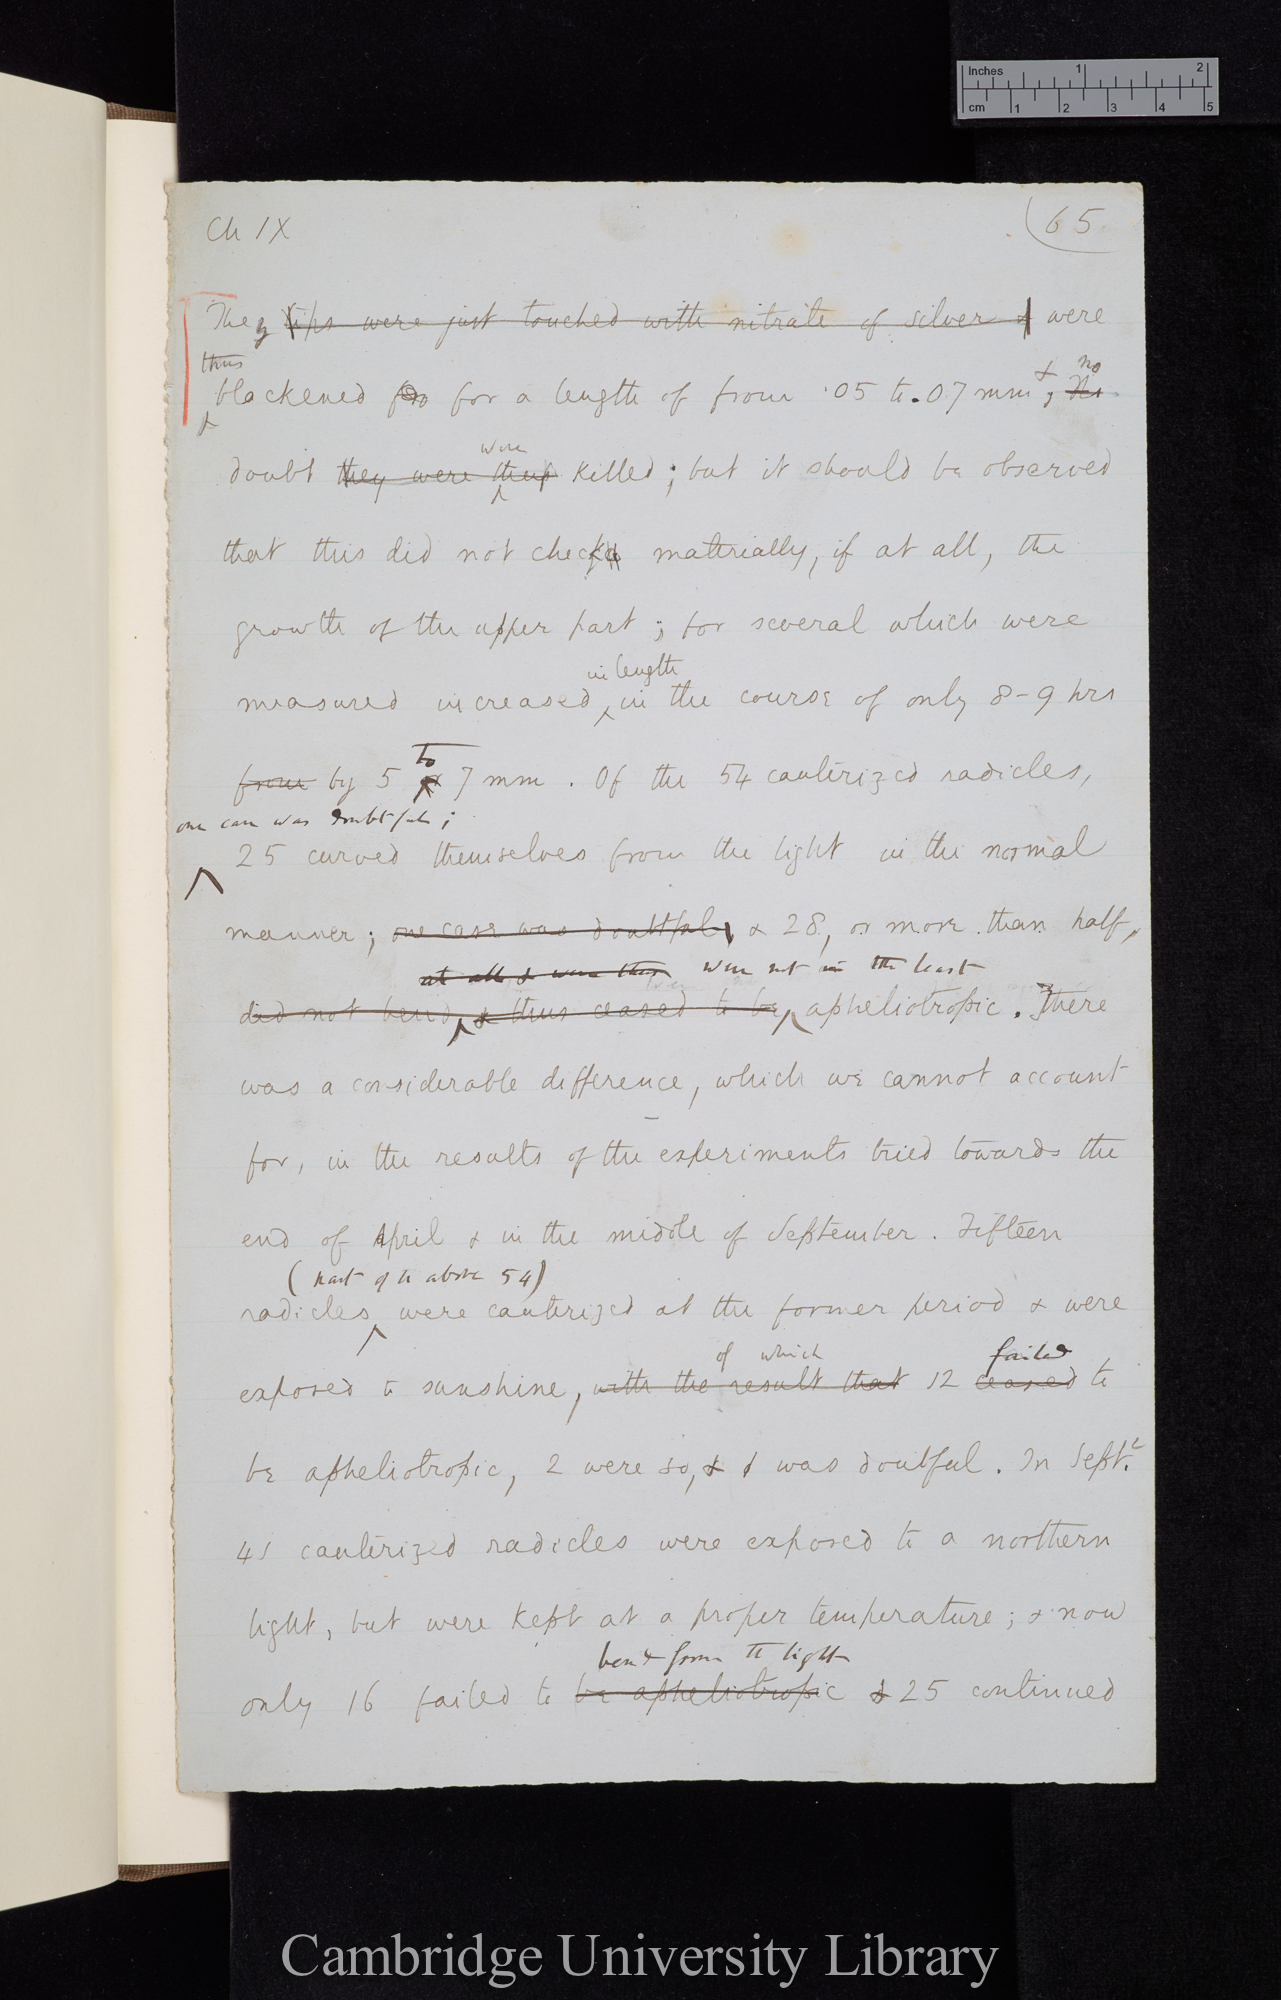 Inches 1 2
cm 1 2 3 4 5
Ch IX
65
They tips were just touched with nitrate of silver & were
thus
& no
blackened for a length of from .05 to .07 mm, No
were
doubt they were thus killed; but it should be observed
that this did not check materially, if at all, the
growth of the upper part; for several which were
in length
measured increased in the course of only 8-9 hrs
to
from by 5 7 mm. Of the 54 cauterized radicles,
one case was doubtful;
25 curved themselves from the light in the normal
manner; one case was doubtful, & 28, or more than half,
at all & were thus were not in the least
did not bend, & thus ceased to be, apheliotropic. There
was a considerable difference, which we cannot account
for, in the results of the experiments tried towards the
end of April & in the middle of September. Fifteen
(part of the above 54)
radicles were cauterized at the former period & were
of which failed
exposed to sunshine, with the result that 12 ceased to
be apheliotropic, 2 were so, & 1 was doutful. In Sept.
41 cauterized radicles were exposed to a northern
light, but were kept at a proper temperature; & now
bend from the light
only 16 failed to be apheliotropic & 25 continued
Cambridge University Library